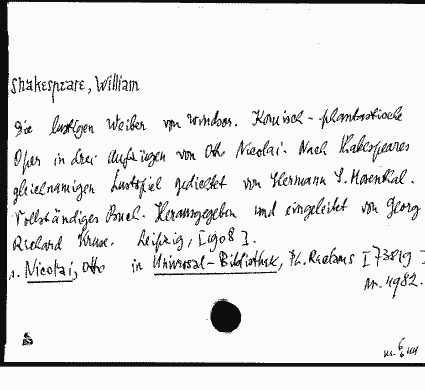 Shakespeare, William
Die lustigen Weiber von Windsor. Komisch-phantastische
Oper in drei Aufzügen von Otto Nicolai. Nach Shakespeares
gleichnamigen Lustspiel gedichtet von Hermann S. Mosenthal.
Vollständiges Buch. Herausgegeben und eingeleitet von Georg
Richard Kruse. Leipzig, [1908].
s. Nicolai, Otto in Universal-Bibliothek, Ph. Reclams [73819]
nr. 4982.